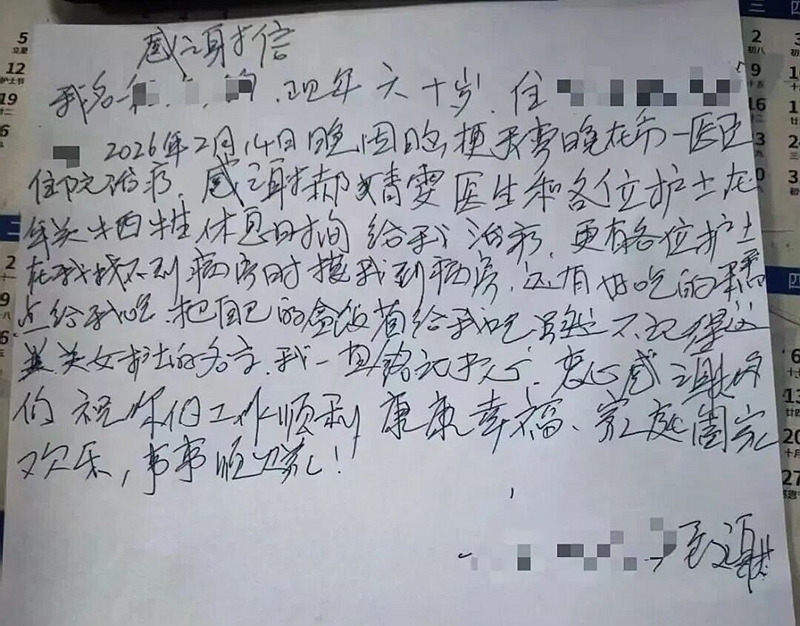 感谢信
我名 现年六十岁.住
2026年2月14日晚因脑梗 晚在市一医
住院治疗.感谢郝婧雯医生和各位护士在
年关牺牲休息时间给我治疗.更有各位护士
在我找不到病房时接我到病房.还有好吃的糕
点给我吃.把自己的盒饭 给我吃虽然不记得这
美女护士的名字.我一直铭记于心.衷心感谢你
们 祝你们工作顺利 康康幸福、家庭阖家
欢乐,事事顺心!
致谢
5
立夏
12
护士节
19
2
3
9
16
四
27
20